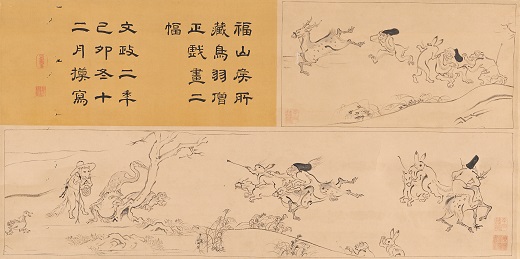 福山矦所
藏鳥羽僧
正戲畫二
幅
文政二年
己卯冬十
二月摸寫